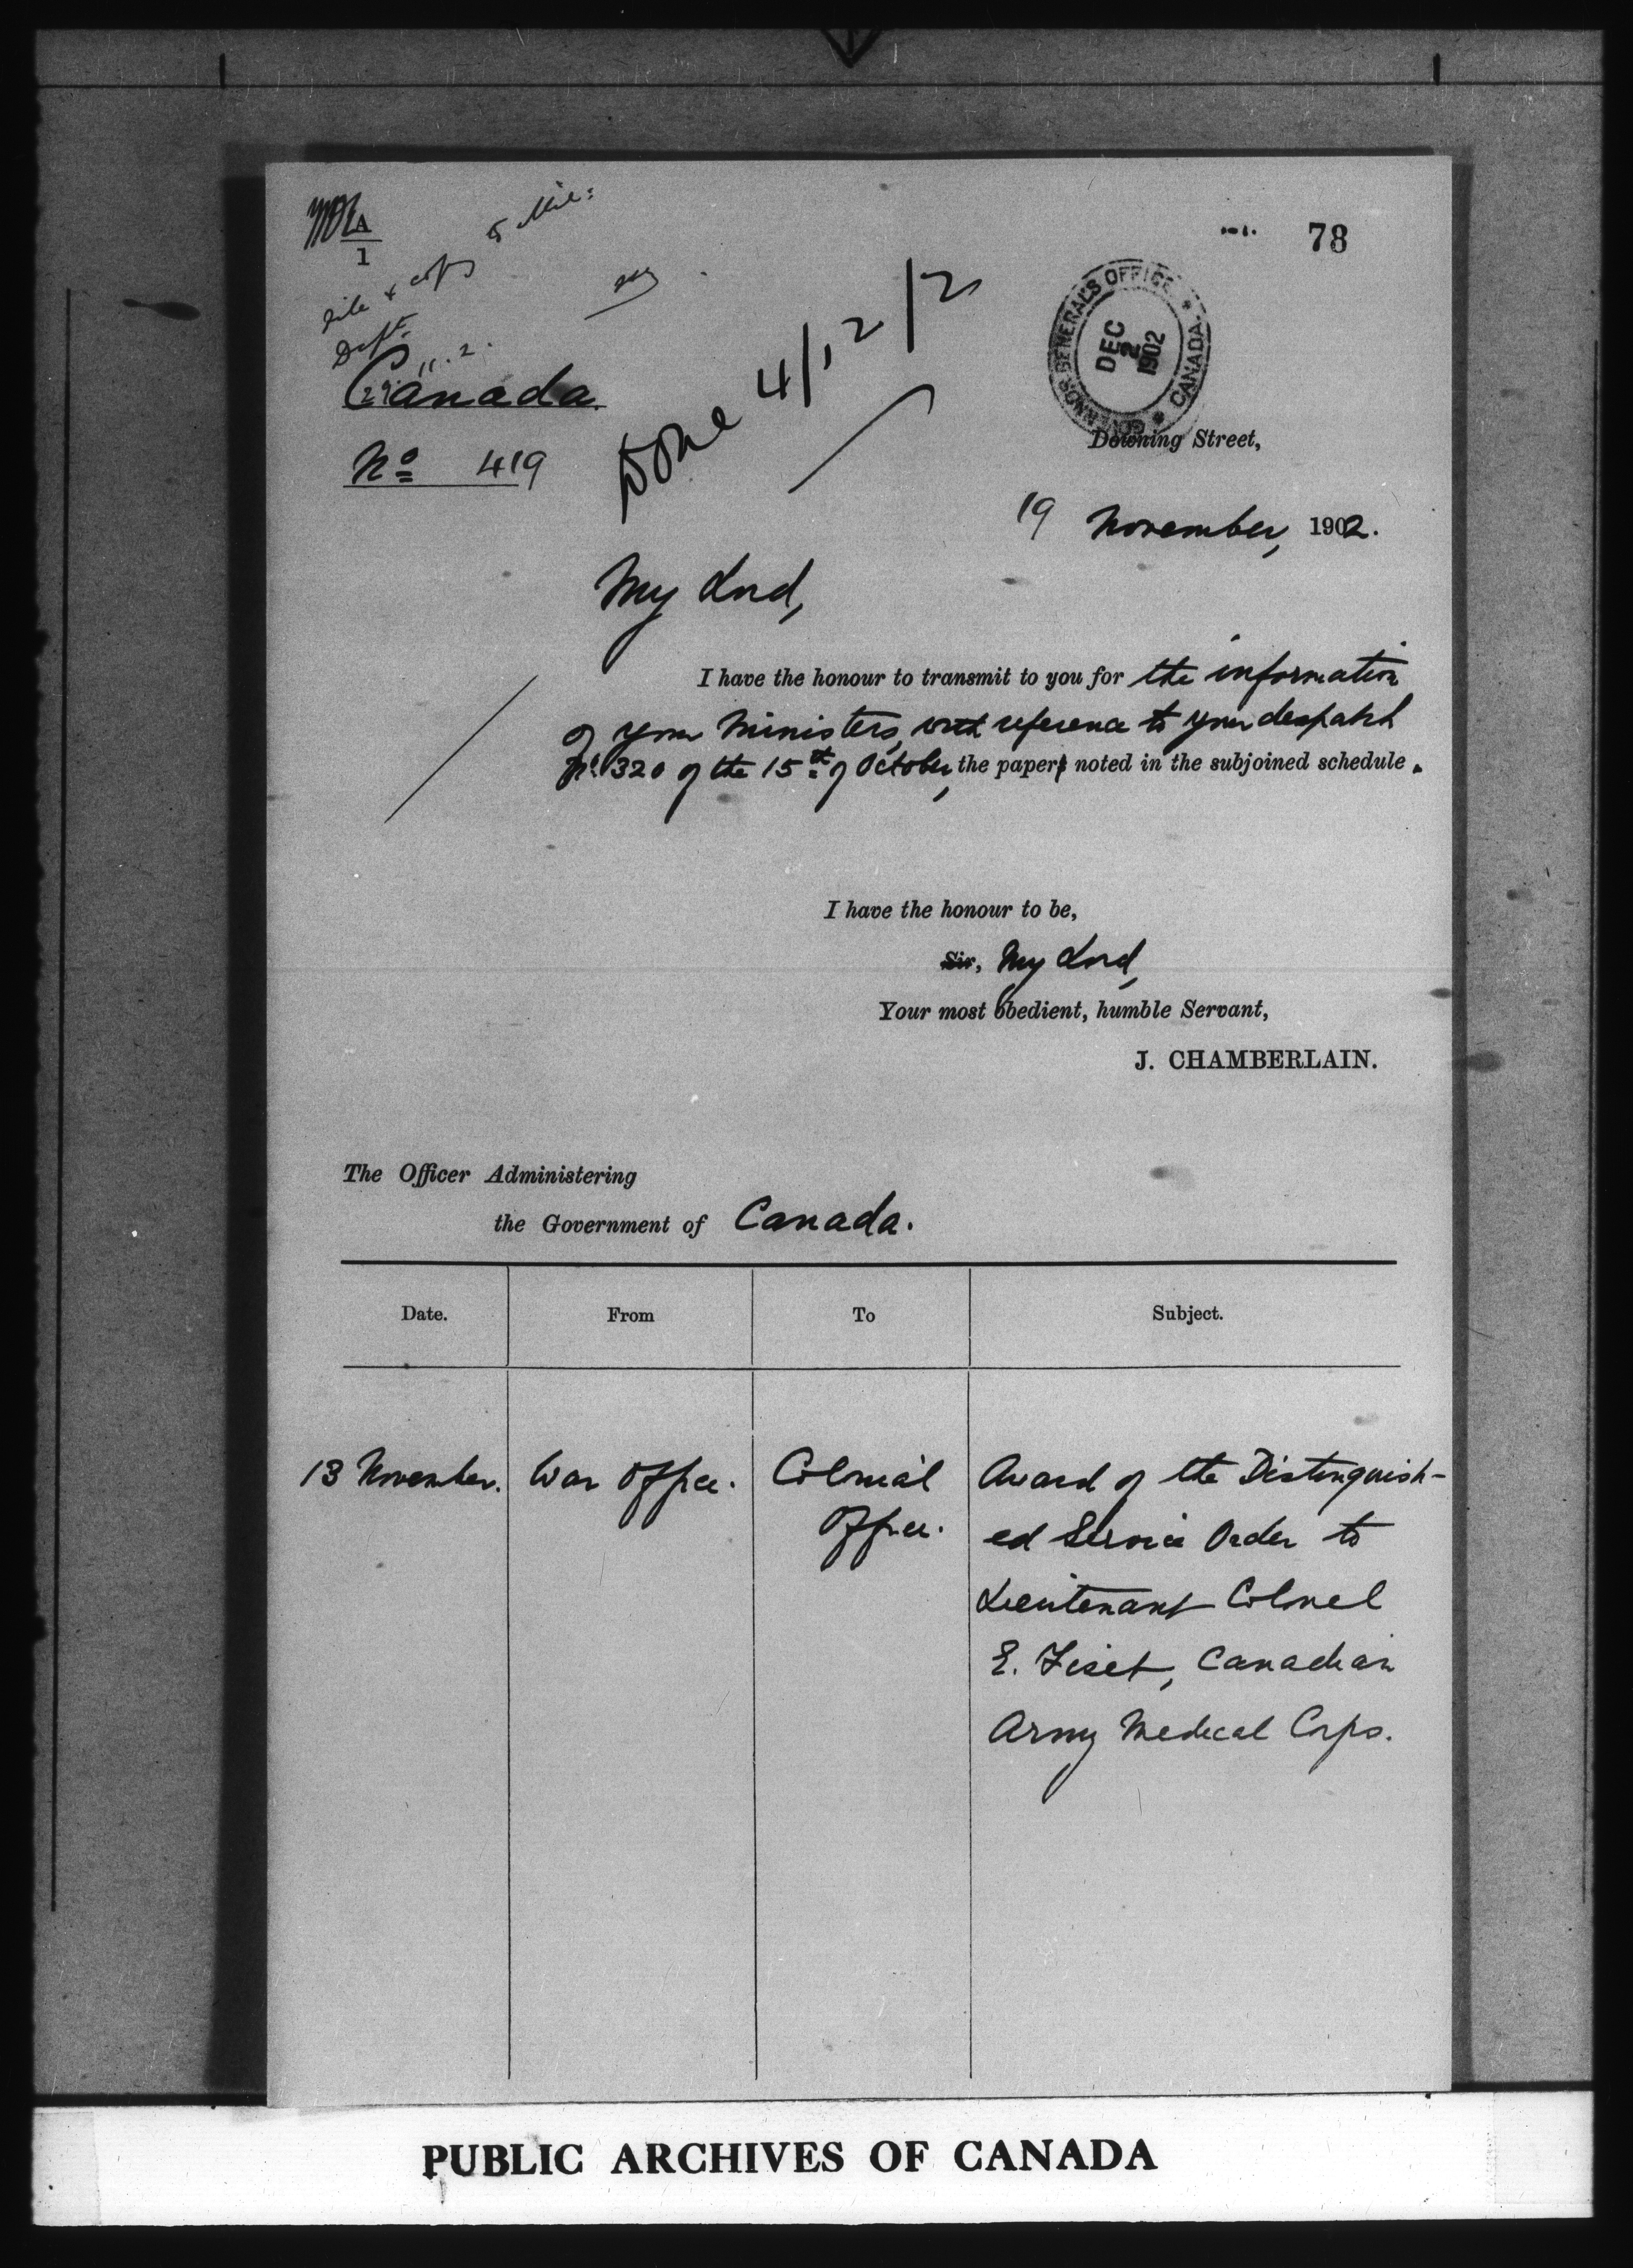 A
1
78
File & copy to Mil:
Dept.
29.11.2.
Done 4/12/2
GOVERNOR GENERAL'S OFFICE * CANADA *
DEC
2
1902
Canada
No 419
Downing Street,
19 November, 1902.
My Lord,
I have the honour to transmit to you for the information
of your Ministers, with reference to your despatch
No. 320 of the 15th of October, the papers noted in the subjoined schedule.
I have the honour to be,
Sir, My Lord,
Your most obedient, humble Servant,
J. CHAMBERLAIN.
The Officer Administering
the Government of Canada.
Date. From To Subject.
13 November. War Office. Colonial Office. Award of the Distinguish-
ed Service Order to
Lieutenant Colonel
E. Fiset, Canadian
Army Medical Corps.
PUBLIC ARCHIVES OF CANADA